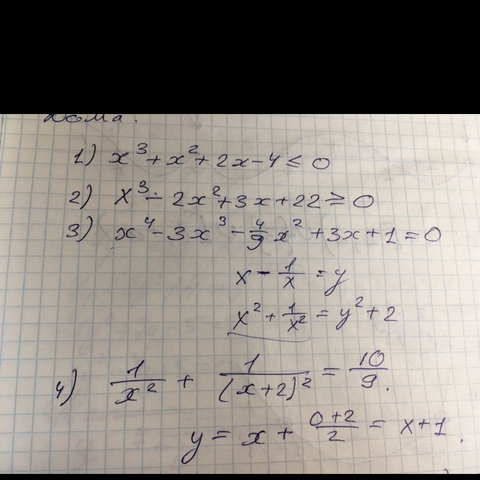 Дома:
1) x³+x²+2x-4≤0
2) x³-2x²+3x+22≥0
3) x⁴-3x³-4/9x²+3x+1=0
x-1/x=y
x²+1/x²=y²+2
4) 1/x²+1/(x+2)²=10/9.
y=x+(0+2)/2=x+1.